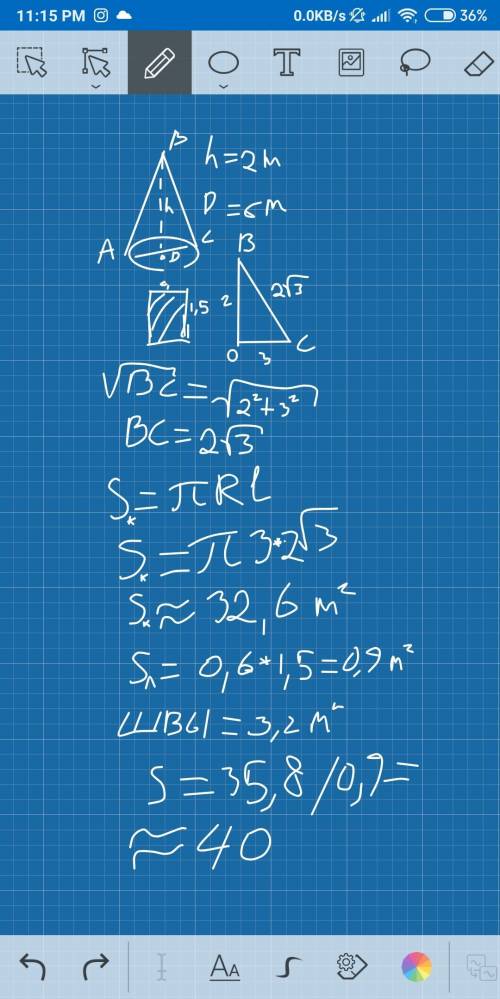 11:15 PM 0.0KB/s 36%
T
B
h=2м
h
D=6м
A C
D
B
1,5 2 2√3
O 3 C
√BC=√2²+3²
BC=2√3
Sₖ=πRl
Sₖ=π3*2√3
Sₖ≈32,6 м²
Sл=0,6*1,5=0,9м²
швы=3,2м²
S=35,8/0,9=
≈40
AA